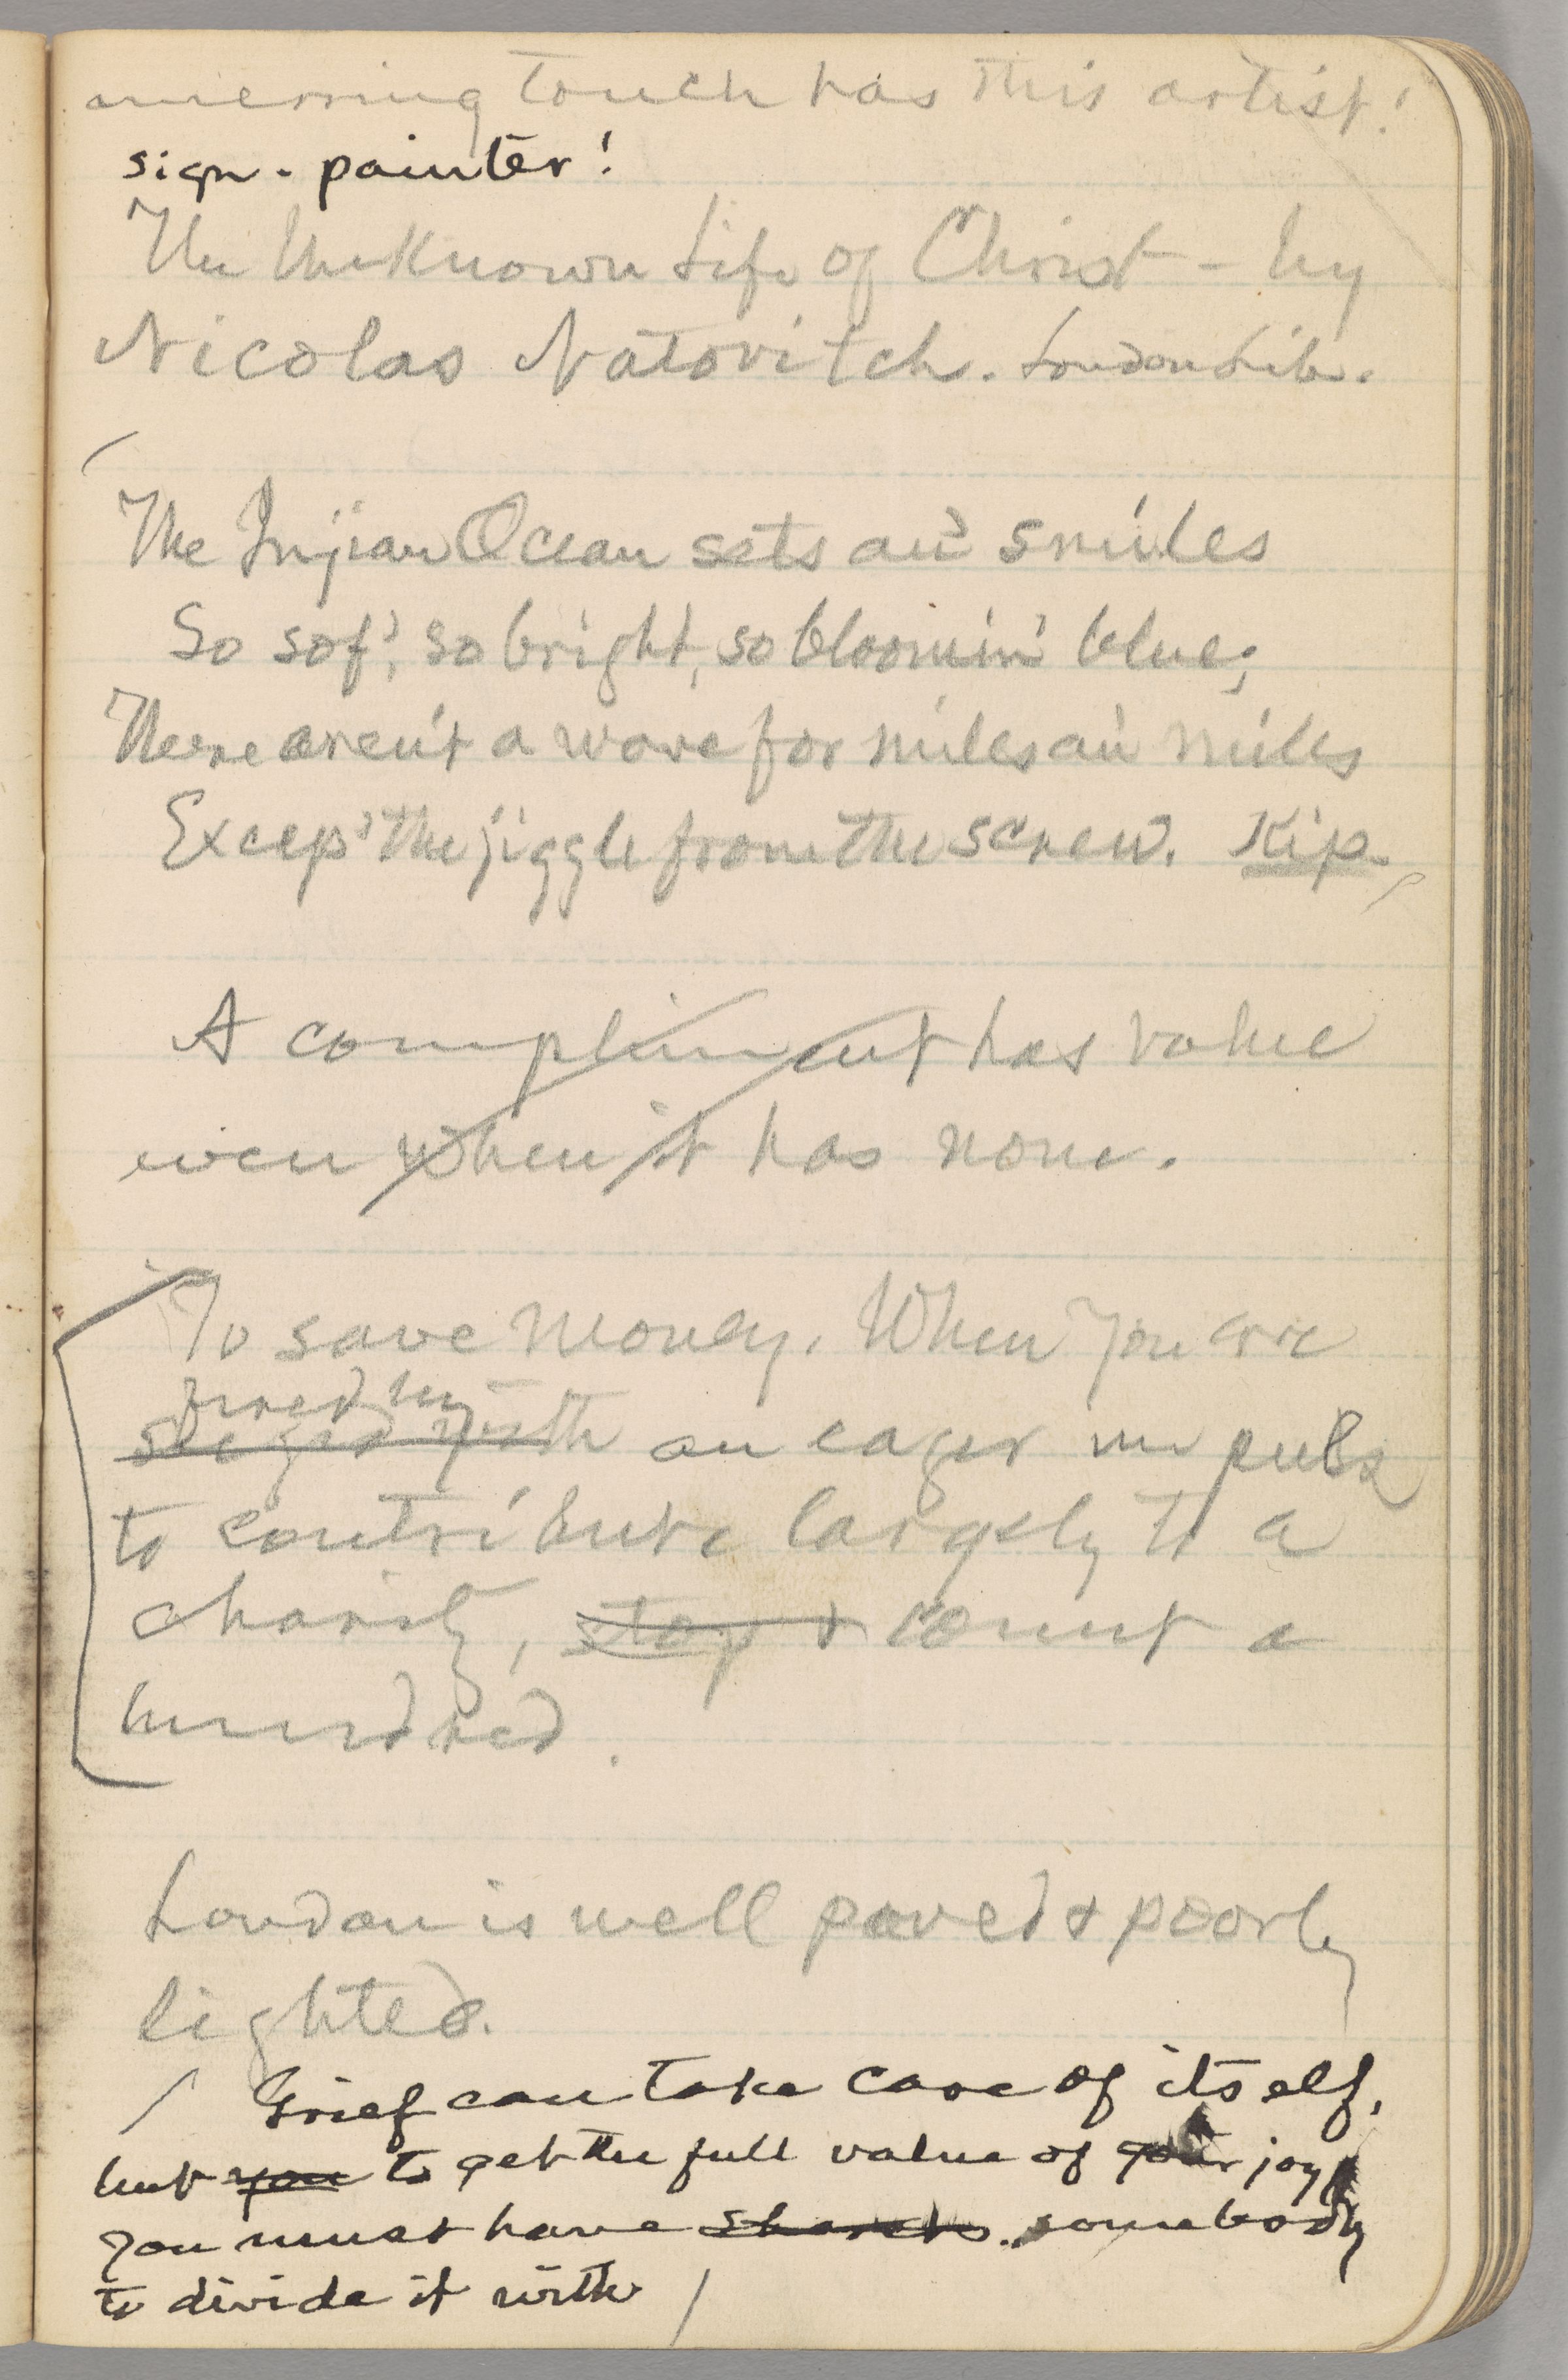 unerring touch has this artist!
sign-painter!
The Unknown Life of Christ – by
Nicolas Natovitch. London Lib.
The Injian Ocean sets an' smiles
So sof', so bright, so bloomin' blue;
There aren't a wave for miles an' miles
Excep' the jiggle from the screw. Kip.
A compliment has value
even when it has none.
To save money. When you are
fired by
with an eager impulse
to contribute largely to a
charity, stop & count a
hundred.
London is well paved & poorly
lighted.
Grief can take care of itself,
but you to get the full value of your joy
you must have sharers. somebody
to divide it with